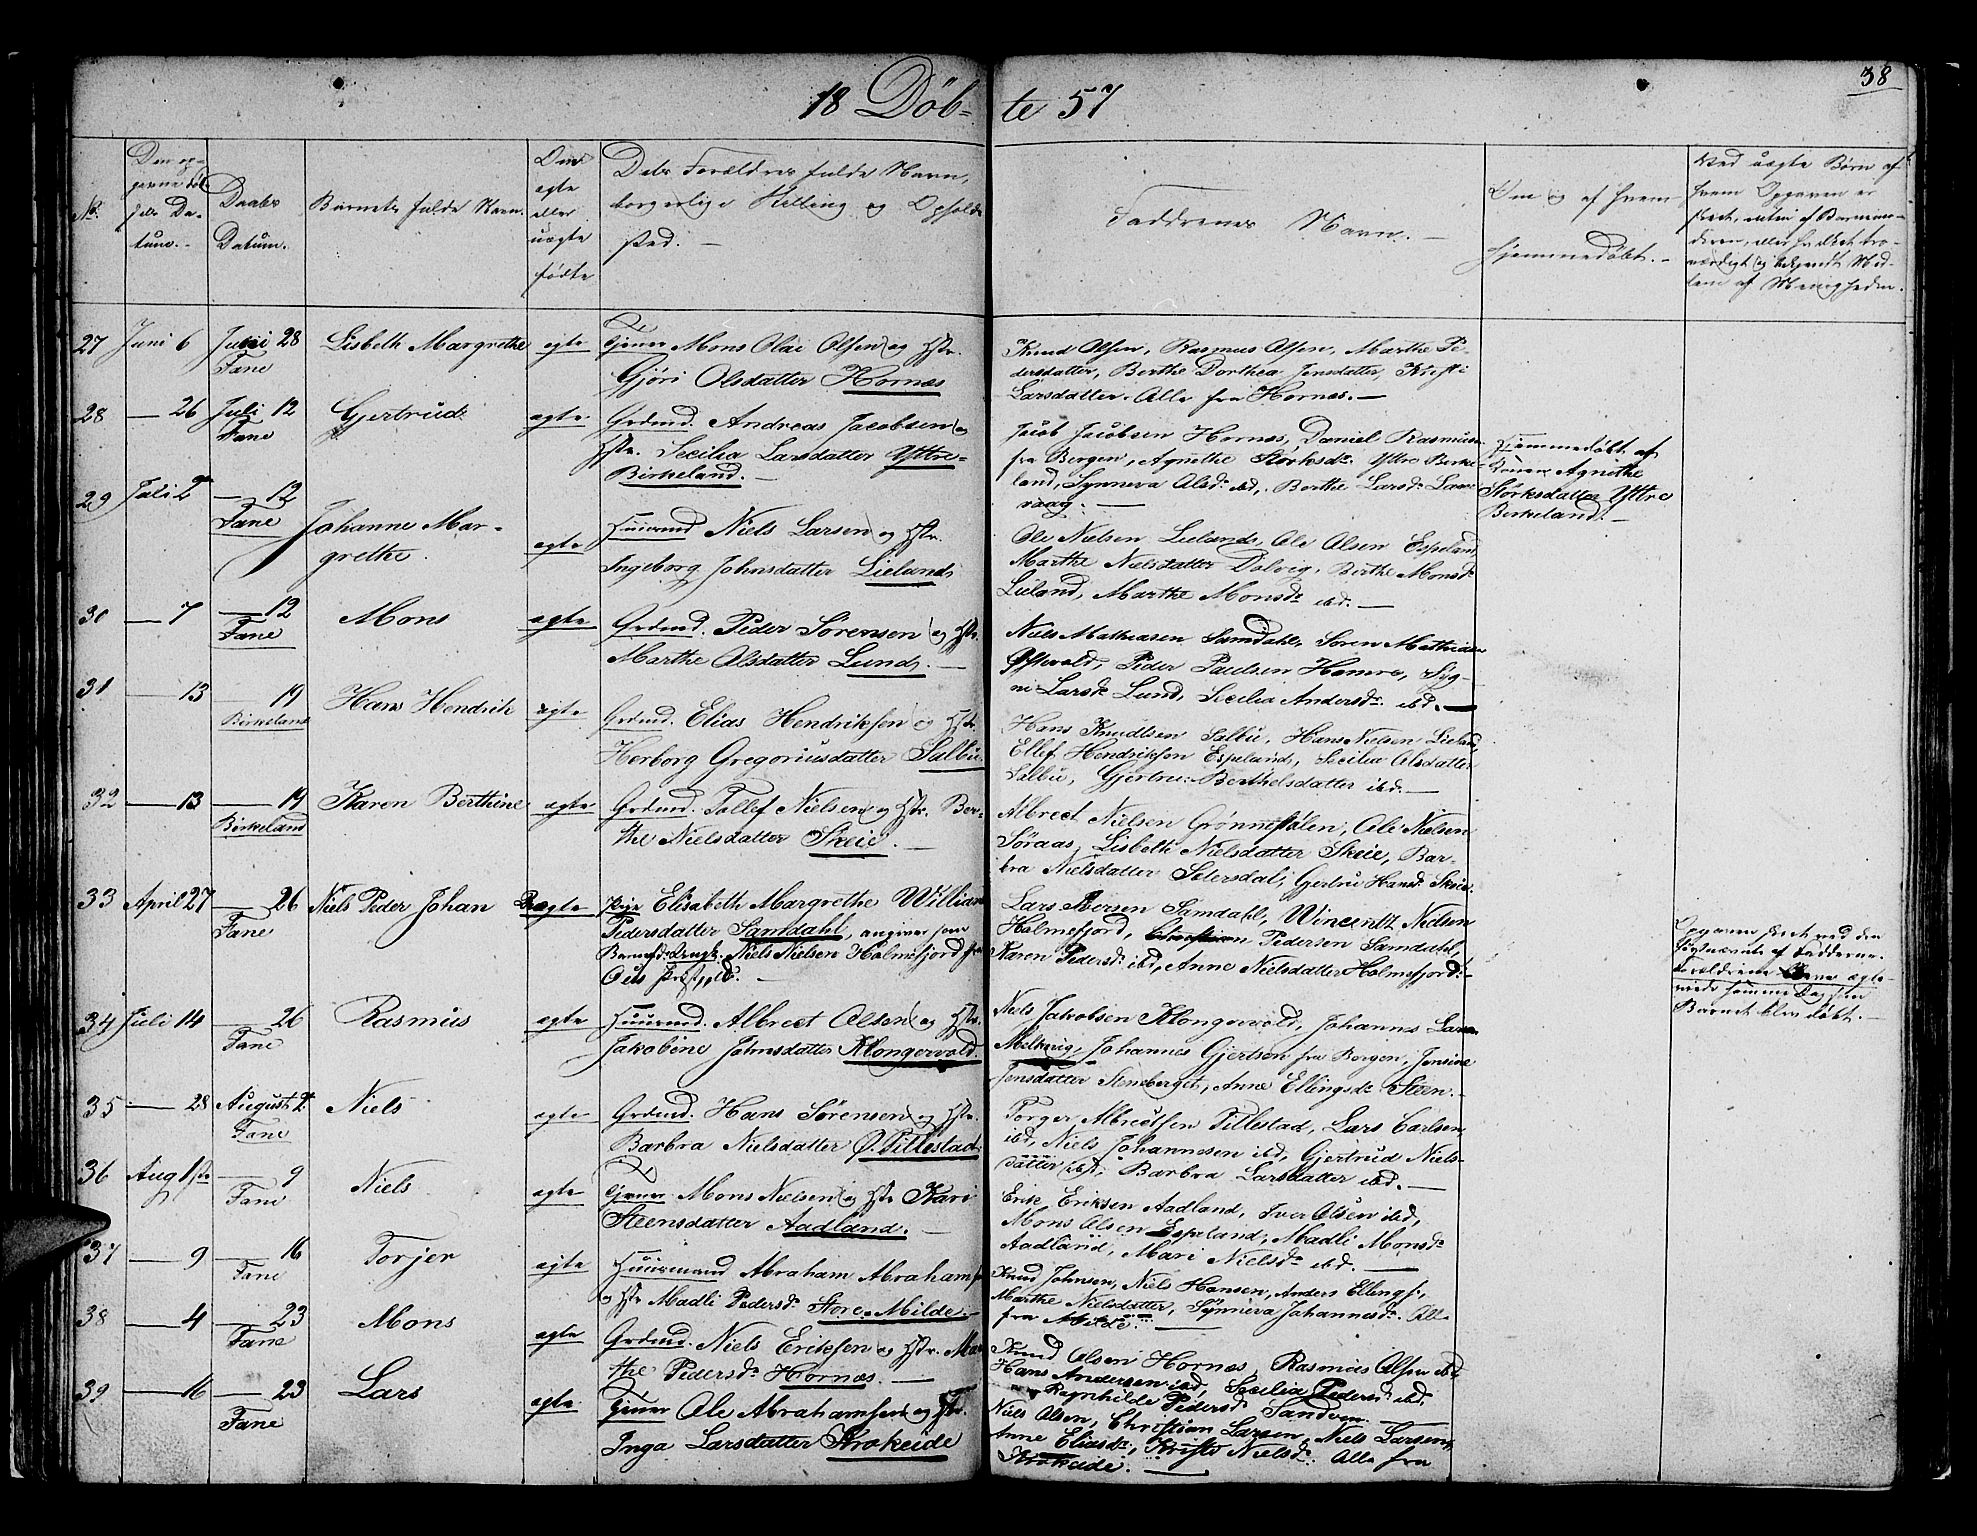 38
18 Döb= te 57
No.
Den op-
givne döb-
tes Da-
tum.-
Daabs
Datum.
Barnets fulde Navn.
Om
ægte
eller
uægte
fødte
Dets Forældres fulde Navn,
borgerlige Stilling og Opholds
sted. -
Faddrenes Navn. -
Om og af hvem
hjemmedöbt. -
Ved uægte Börn af
hvem Opgaven er
skeet, enten af Barnemo-
deren, eller hvilket tro-
værdigt og bekjendt Med-
lem af Menigheden.
27 Juni 6 Juni 28 Lisbeth Margrethe egte Mons Olai Olsen og Hstr.
Fane
Gjöri Olsdatter Hornæs
Knud Olsen, Rasmus Olsen, Marthe Pe-
dersdatter, Berthe Dorthea Jensdatter, Kristi
Larsdatter. Alle fra Hornæs. -
28 — 26 Juli 12 Gjertrud egte Grdmd. Andreas Jacobsen og
Fane
Hstr. Secilia Larsdatter Yttre-
Birkeland. -
Jacob Jacobsen Hornæs, Daniel Rasmus
fra Bergen, Agnethe Störksdr. Yttre Birke
land, Synneva Olsdr. ibd, Berthe Larsdr.
vaag. -
Hjemmedöbt af
Agnethe
Störksdatter Yttre
Birkeland. -
29 Juli 2 — 12 Johanne Mar-
Fane
grethe.
egte Huusmd Niels Larsen og Hstr.
Ingeborg Johnsdatter Lieland
Ole Nielsen Lieland, Ole Olsen Espeland
Marthe Nielsdatter Dalvig, Berthe Monsdr
Lieland, Marthe Monsdr ibd. -
30 — 7 — 12 Mons egte Grdmd. Peder Sörensen og Hstr.
Fane
Marthe Olsdatter Lund. -
Niels Mathiasen Samdahl, Sören Mathias
Peder Paulsen Hamre, Syg-
ni Larsdr. Lund, Secilia Andersdr. ibd. -
31 — 13 — 19 Hans Hendrik egte Grdmd. Elias Hendriksen og Hstr.
Birkeland
Herborg Gregoriusdatter Salbu.
Hans Knudtsen Salbu, Hans Nielsen Lieland,
Ellef Hendriksen Espeland, Secilia Olsdatter
Salbu, Gjertru Berthelsdatter ibd. -
32 — 13 — 19 Karen Berthine egte Grdmd. Tollef Nielsen og Hstr. Ber-
Birkeland
the Nielsdatter Skeie. -
Albrect Nielsen Grönnestölen, Ole Nielsen
Söraas, Lisbeth Nielsdatter Skeie, Bar-
bra Nielsdatter Sætersdal, Gjertru Hansdr. Skeie.
33 April 27 — 26 Niels Peder Johan uegte Pige Elisabeth Margrethe William
Fane
Pedersdatter Samdahl, angiver som
Barnefader Ungk. Niels Nielsen Holmefjord fra
Ous Præstgjeld. -
Lars Iversen Samdahl, Wincentz Nielsen
Holmefjord, Pedersen Samdahl,
Karen Pedersdr. ibd, Anne Nielsdatter Holmefjord. -
Opgaven skeet ved den
af Faddrene.
Forældrene bleve ægte-
viede samme Dag som
Barnet blev döbt. -
34 Juli 14 — 26 Rasmus egte Huusmd. Albrect Olsen og Hstr.
Fane
Jakobine Johnsdatter Klongervold.
Niels Jakobsen Klongervold, Johannes Larsen
Melkevig, Johannes Gjertsen fra Bergen, Jensine
Jensdatter Stenberget, Anne Ellingsdr. Steen. -
35 — 28 August 2 Niels egte Grdmd. Hans Sörensen og Hstr.
Fane
Barbra Nielsdatter Ø. Titlestad.
Torger Albrectsen Titlestad, Lars Carlsen
ibd, Niels Johannesen ibd, Gjertrud Niels-
datter ibd, Barbra Larsdatter ibd. -
36 Aug 1ste — 9 Niels egte Mons Nielsen og Hstr Kari
Fane
Steensdatter Aadland. -
Erik Eriksen Aadland, Iver Olsen ibd,
Mons Olsen Espeland, Madli Monsdr
Aadland, Mari Nielsdr ibd. -
37 — 9 — 16 Torjer egte Huusmand Abraham Abrahams
Fane
og Hstr Madli Pedersdr. Store-Milde. -
Knud Johnsen, Niels Hansen, Anders Ellings,
Marthe Nielsdatter, Synneva Johannesdr. Alle
fra Milde. -
38 — 4 — 23 Mons egte Grdmd. Niels Eriksen og Hstr. Mar
Fane
the Pedersdr. Hornæs. -
Knud Olsen Hornæs, Rasmus Olsen ibd
Hans Andersen ibd, Secilia Pedersdr ibd.
Ragnhilde Pedersdr Sandven. -
39 — 16 — 23 Lars egte Ole Abrahamsen og Hstr.
Fane
Inga Larsdatter Krokeide
Niels Olsen, Christian Larsen, Niels Larsen,
Anne Eliasdr, Kristi Nielsdr. Alle fra
Krokeide. -